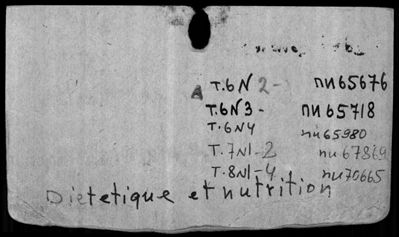 A T.6N2- nu65676
T.6N3- nu65718
T.6N4 nu65980
T.7N1-2 nu67869
T.8N1-4 nu70665
Dietetique et nutrition